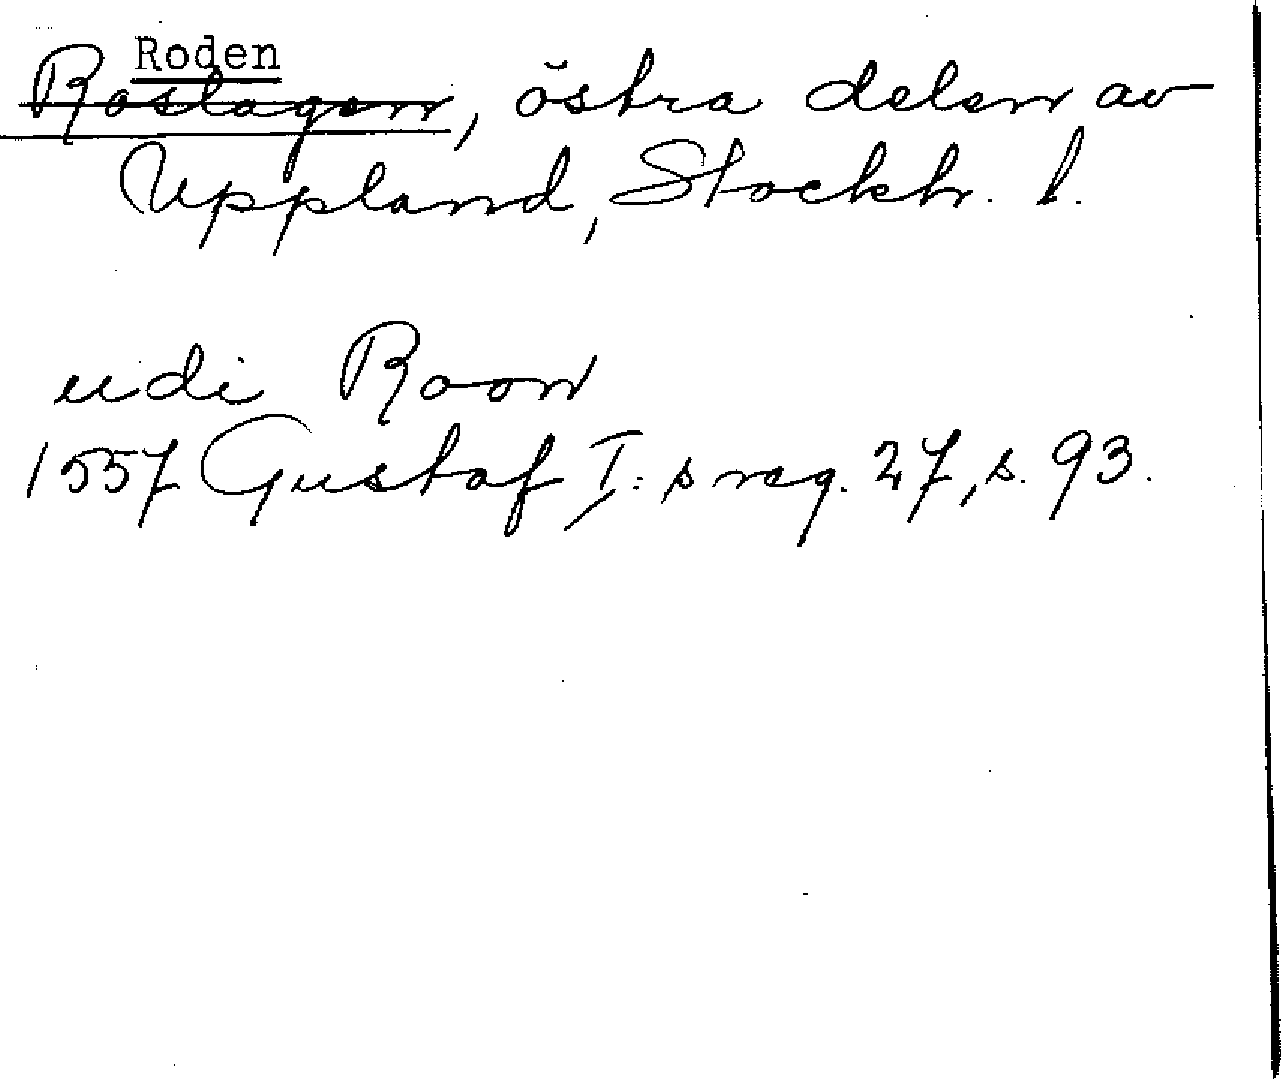 Roden
Roslagen, östra delen av
Uppland, Stockh. l.
udi Roon
1557 Gustaf I:s reg. 27, s. 93.